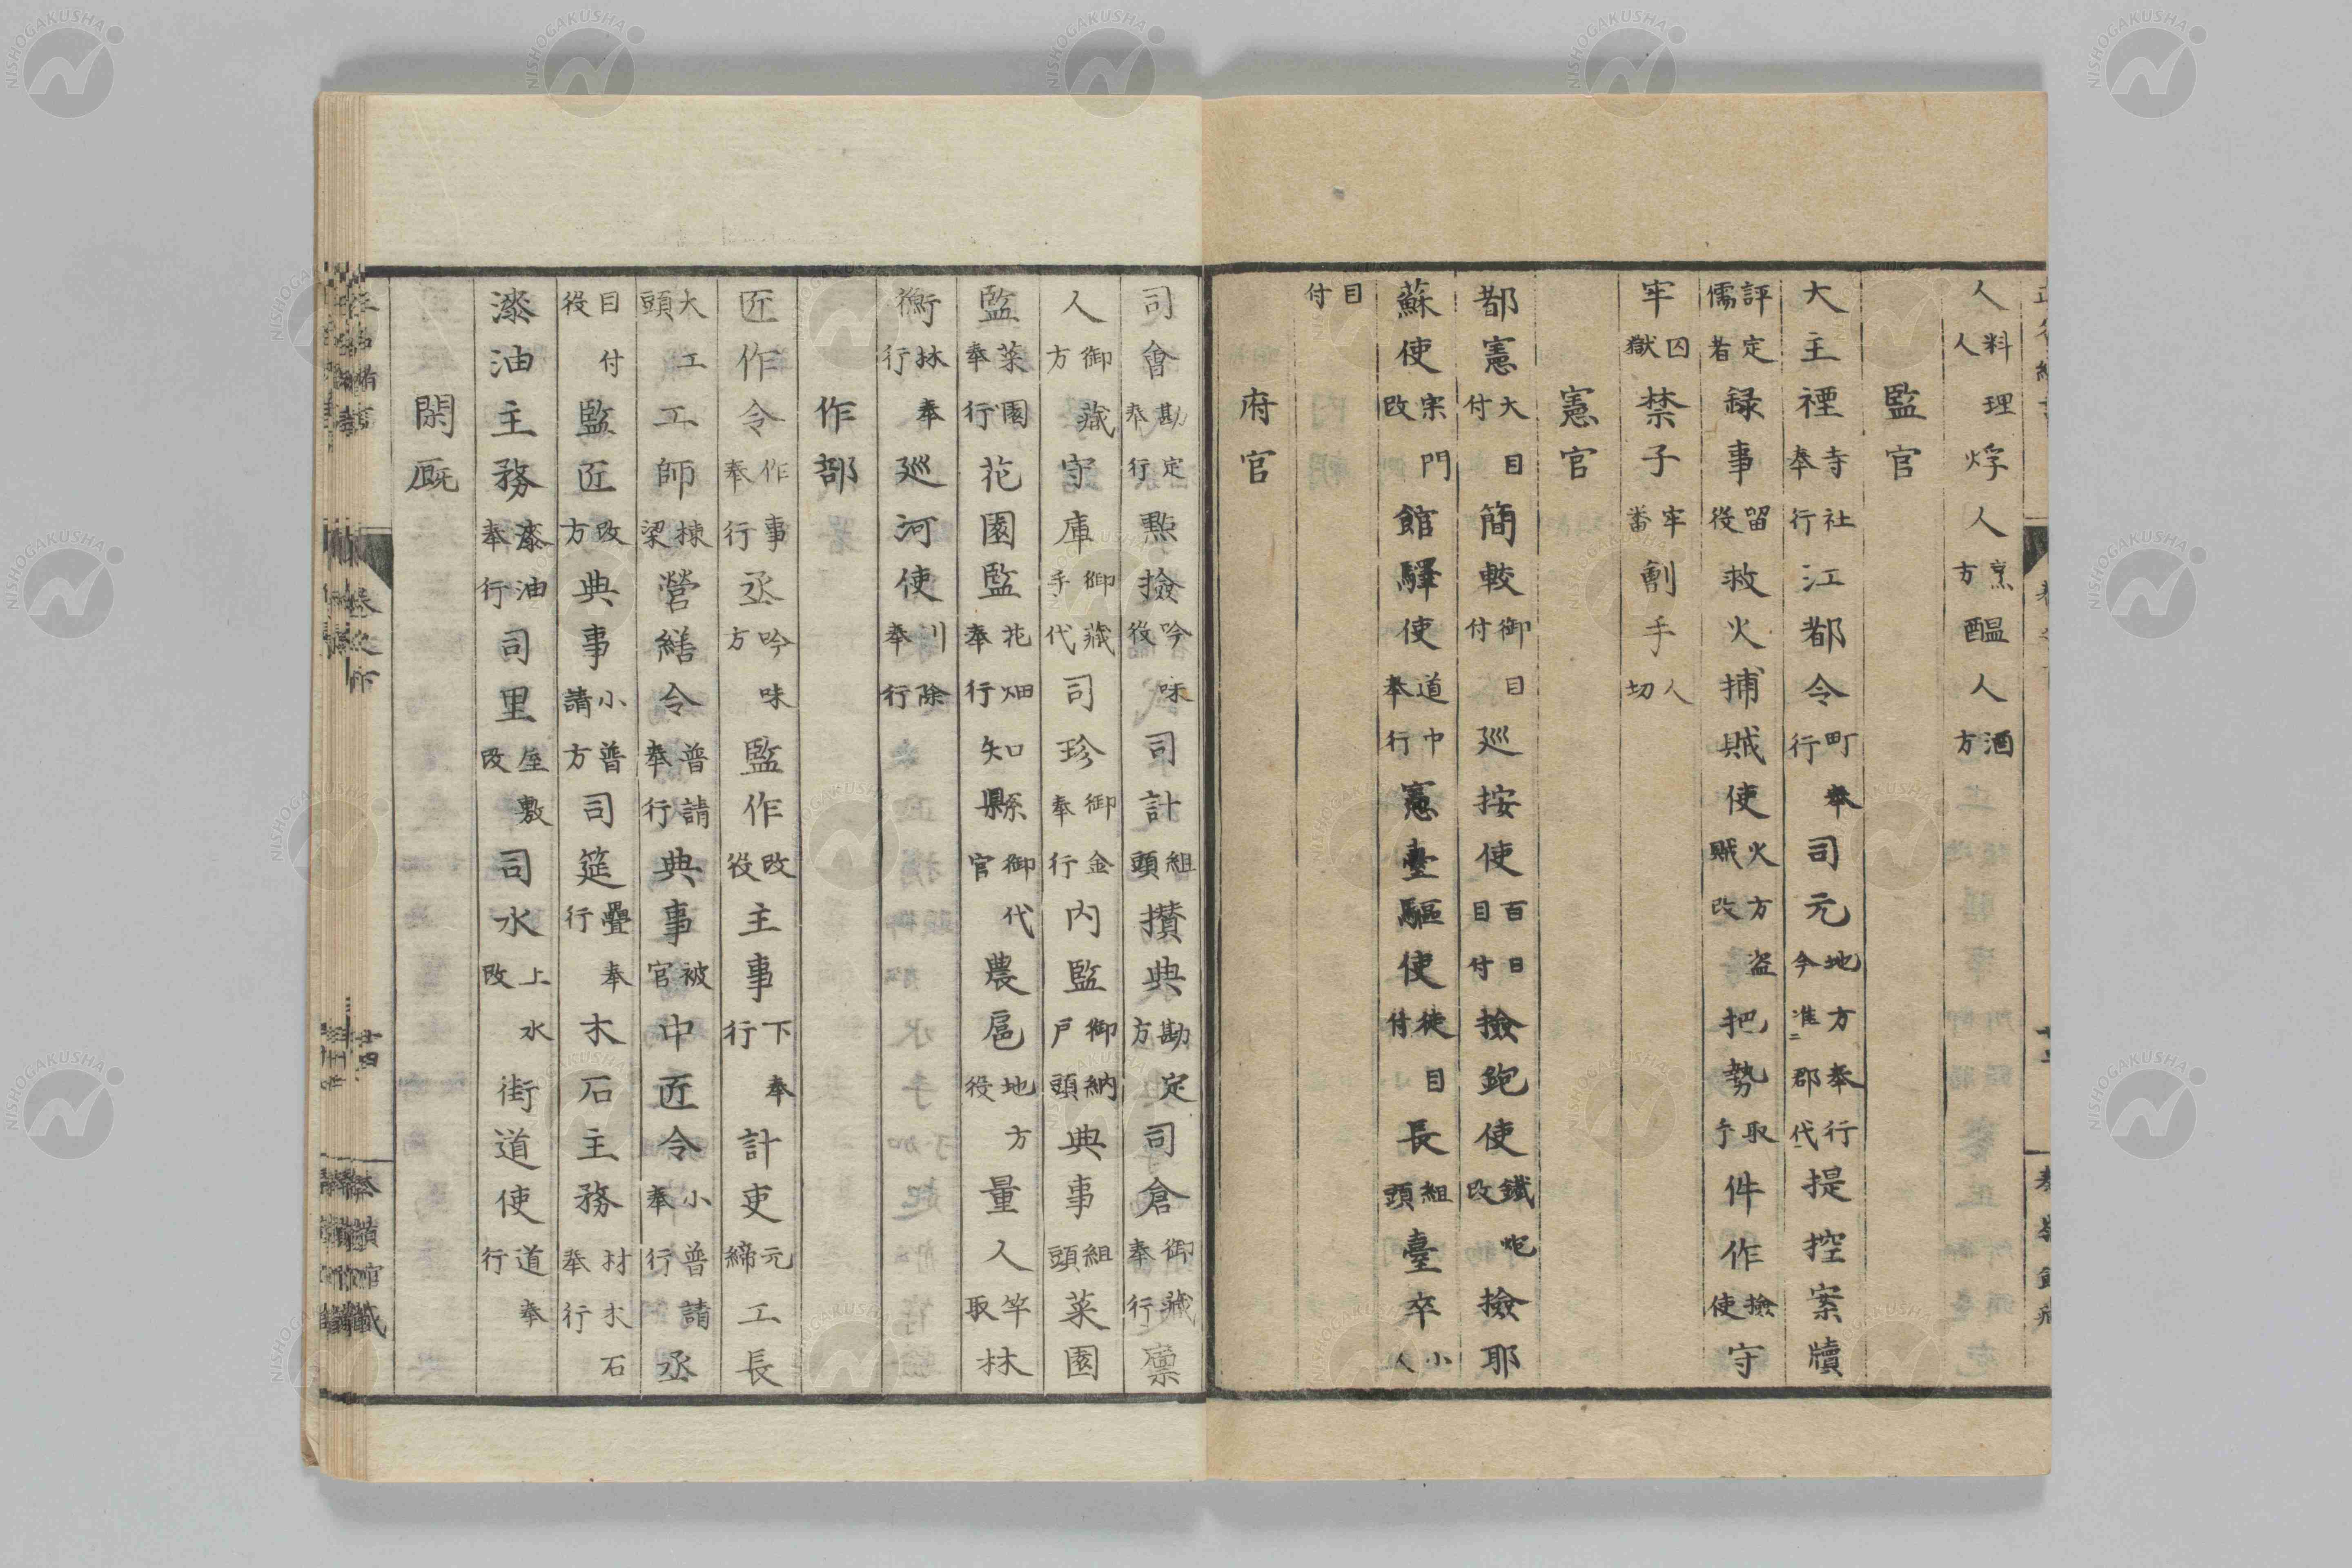 人料理人烰人烹方醞人酒方
監官
大主禋寺社奉行江都令町奉行司元地方奉行今准郡代提控案牘
評定儒者録事留役救火捕賊使火方盗賊改把勢取手件作撿使守
牢囚獄禁子牢番劊手人切
憲官
都憲大目付簡較御目付廵按使百日目付撿鉋使鐵炮改撿耶
蘇使宗門改館驛使道中奉行憲臺驅使徒目付長組頭臺卒小人
目付
府官
司會勘定奉行㸃撿吟味役司計組頭攅典勘定方司倉御藏奉行廩
人御藏方守庫御藏手代司珍御金奉行内監御納戸頭典事組頭菜園
監菜園奉行花園監花畑奉行知縣御代官農扈地方役量人竿取林
衡林奉行廵河使川除奉行
作部
匠作令作事奉行丞吟味方監作改役主事下奉行計吏元締工長
大工頭工師棟梁營繕令普請奉行典事被官中匠令小普請奉行丞
目付役監匠改方典事小普請方司筵疊奉行木石主務材木石奉行
漆油主務漆油奉行司里屋敷改司水上水改街道使道奉行
閑厩